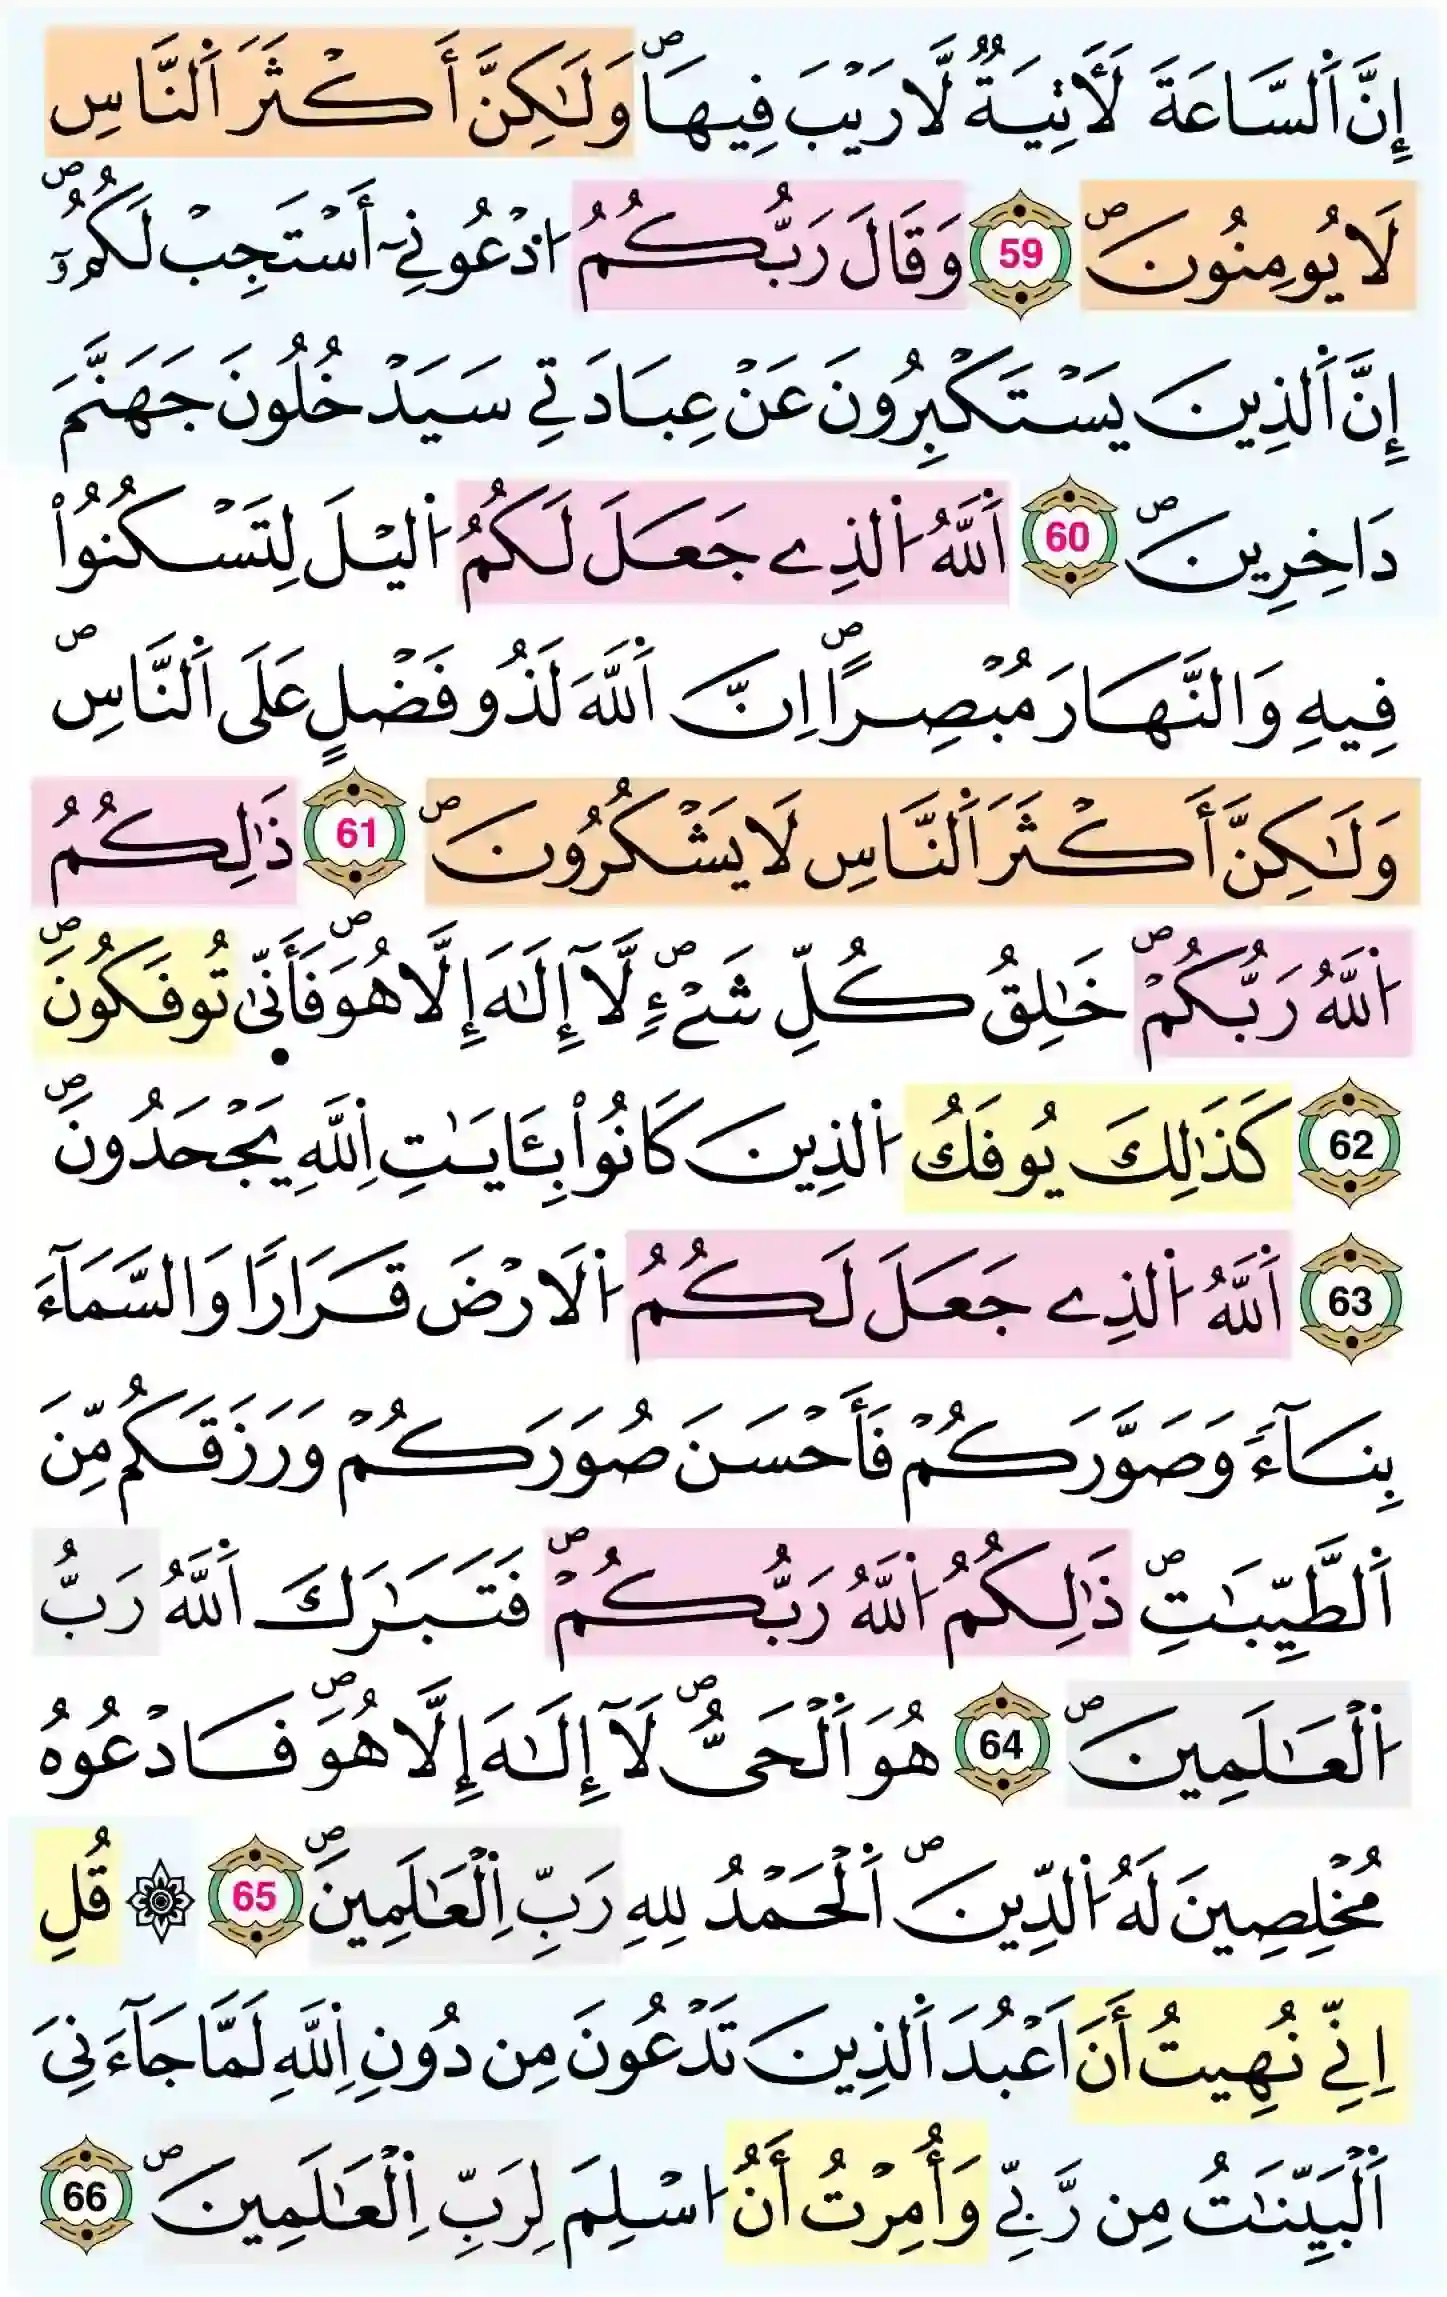 إِنَّ اَ۬لسَّاعَةَ لَأٓتِيَةٞ لَّا رَيْبَ فِيهَاۖ وَلَٰكِنَّ أَكْثَرَ اَ۬لنَّاسِ
لَا يُومِنُونَۖ 59 وَقَالَ رَبُّكُمُ اُ۟دْعُونِيٓ أَسْتَجِبْ لَكُمُۥٓۖ
إِنَّ اَ۬لذِينَ يَسْتَكْبِرُونَ عَنْ عِبَادَتِي سَيَدْخُلُونَ جَهَنَّمَ
دَاخِرِينَۖ 60 اَ۬للَّهُ اُ۬لذِے جَعَلَ لَكُمُ اُ۬ليْلَ لِتَسْكُنُواْ
فِيهِ وَالنَّهَارَ مُبْصِراًۖ اِنَّ اَ۬للَّهَ لَذُو فَضْلٍ عَلَى اَ۬لنَّاسِۖ
وَلَٰكِنَّ أَكْثَرَ اَ۬لنَّاسِ لَا يَشْكُرُونَۖ 61 ذَٰلِكُمُ
اُ۬للَّهُ رَبُّكُمْۖ خَٰلِقُ كُلِّ شَےْءٖۖ لَّآ إِلَٰهَ إِلَّا هُوَۖ فَأَنّ۪يٰ تُوفَكُونَۖ
62 كَذَٰلِكَ يُوفَكُ اُ۬لذِينَ كَانُواْ بِـَٔايَٰتِ اِ۬للَّهِ يَجْحَدُونَۖ
63 اَ۬للَّهُ اُ۬لذِے جَعَلَ لَكُمُ اُ۬لَارْضَ قَرَاراً وَالسَّمَآءَ
بِنَآءٗ وَصَوَّرَكُمْ فَأَحْسَنَ صُوَرَكُمْ وَرَزَقَكُم مِّنَ
اَ۬لطَّيِّبَٰتِۖ ذَٰلِكُمُ اُ۬للَّهُ رَبُّكُمْۖ فَتَبَٰرَكَ اَ۬للَّهُ رَبُّ
اُ۬لْعَٰلَمِينَۖ 64 هُوَ اَ۬لْحَيُّۖ لَآ إِلَٰهَ إِلَّا هُوَۖ فَادْعُوهُ
مُخْلِصِينَ لَهُ اُ۬لدِّينَۖ اَ۬لْحَمْدُ لِلهِ رَبِّ اِ۬لْعَٰلَمِينَۖ 65 ۞ قُلِ
اِنِّي نُهِيتُ أَنَ اَعْبُدَ اَ۬لذِينَ تَدْعُونَ مِن دُونِ اِ۬للَّهِ لَمَّا جَآءَنِيَ
اَ۬لْبَيِّنَٰتُ مِن رَّبِّي وَأُمِرْتُ أَنُ ا۟سْلِمَ لِرَبِّ اِ۬لْعَٰلَمِينَۖ 66